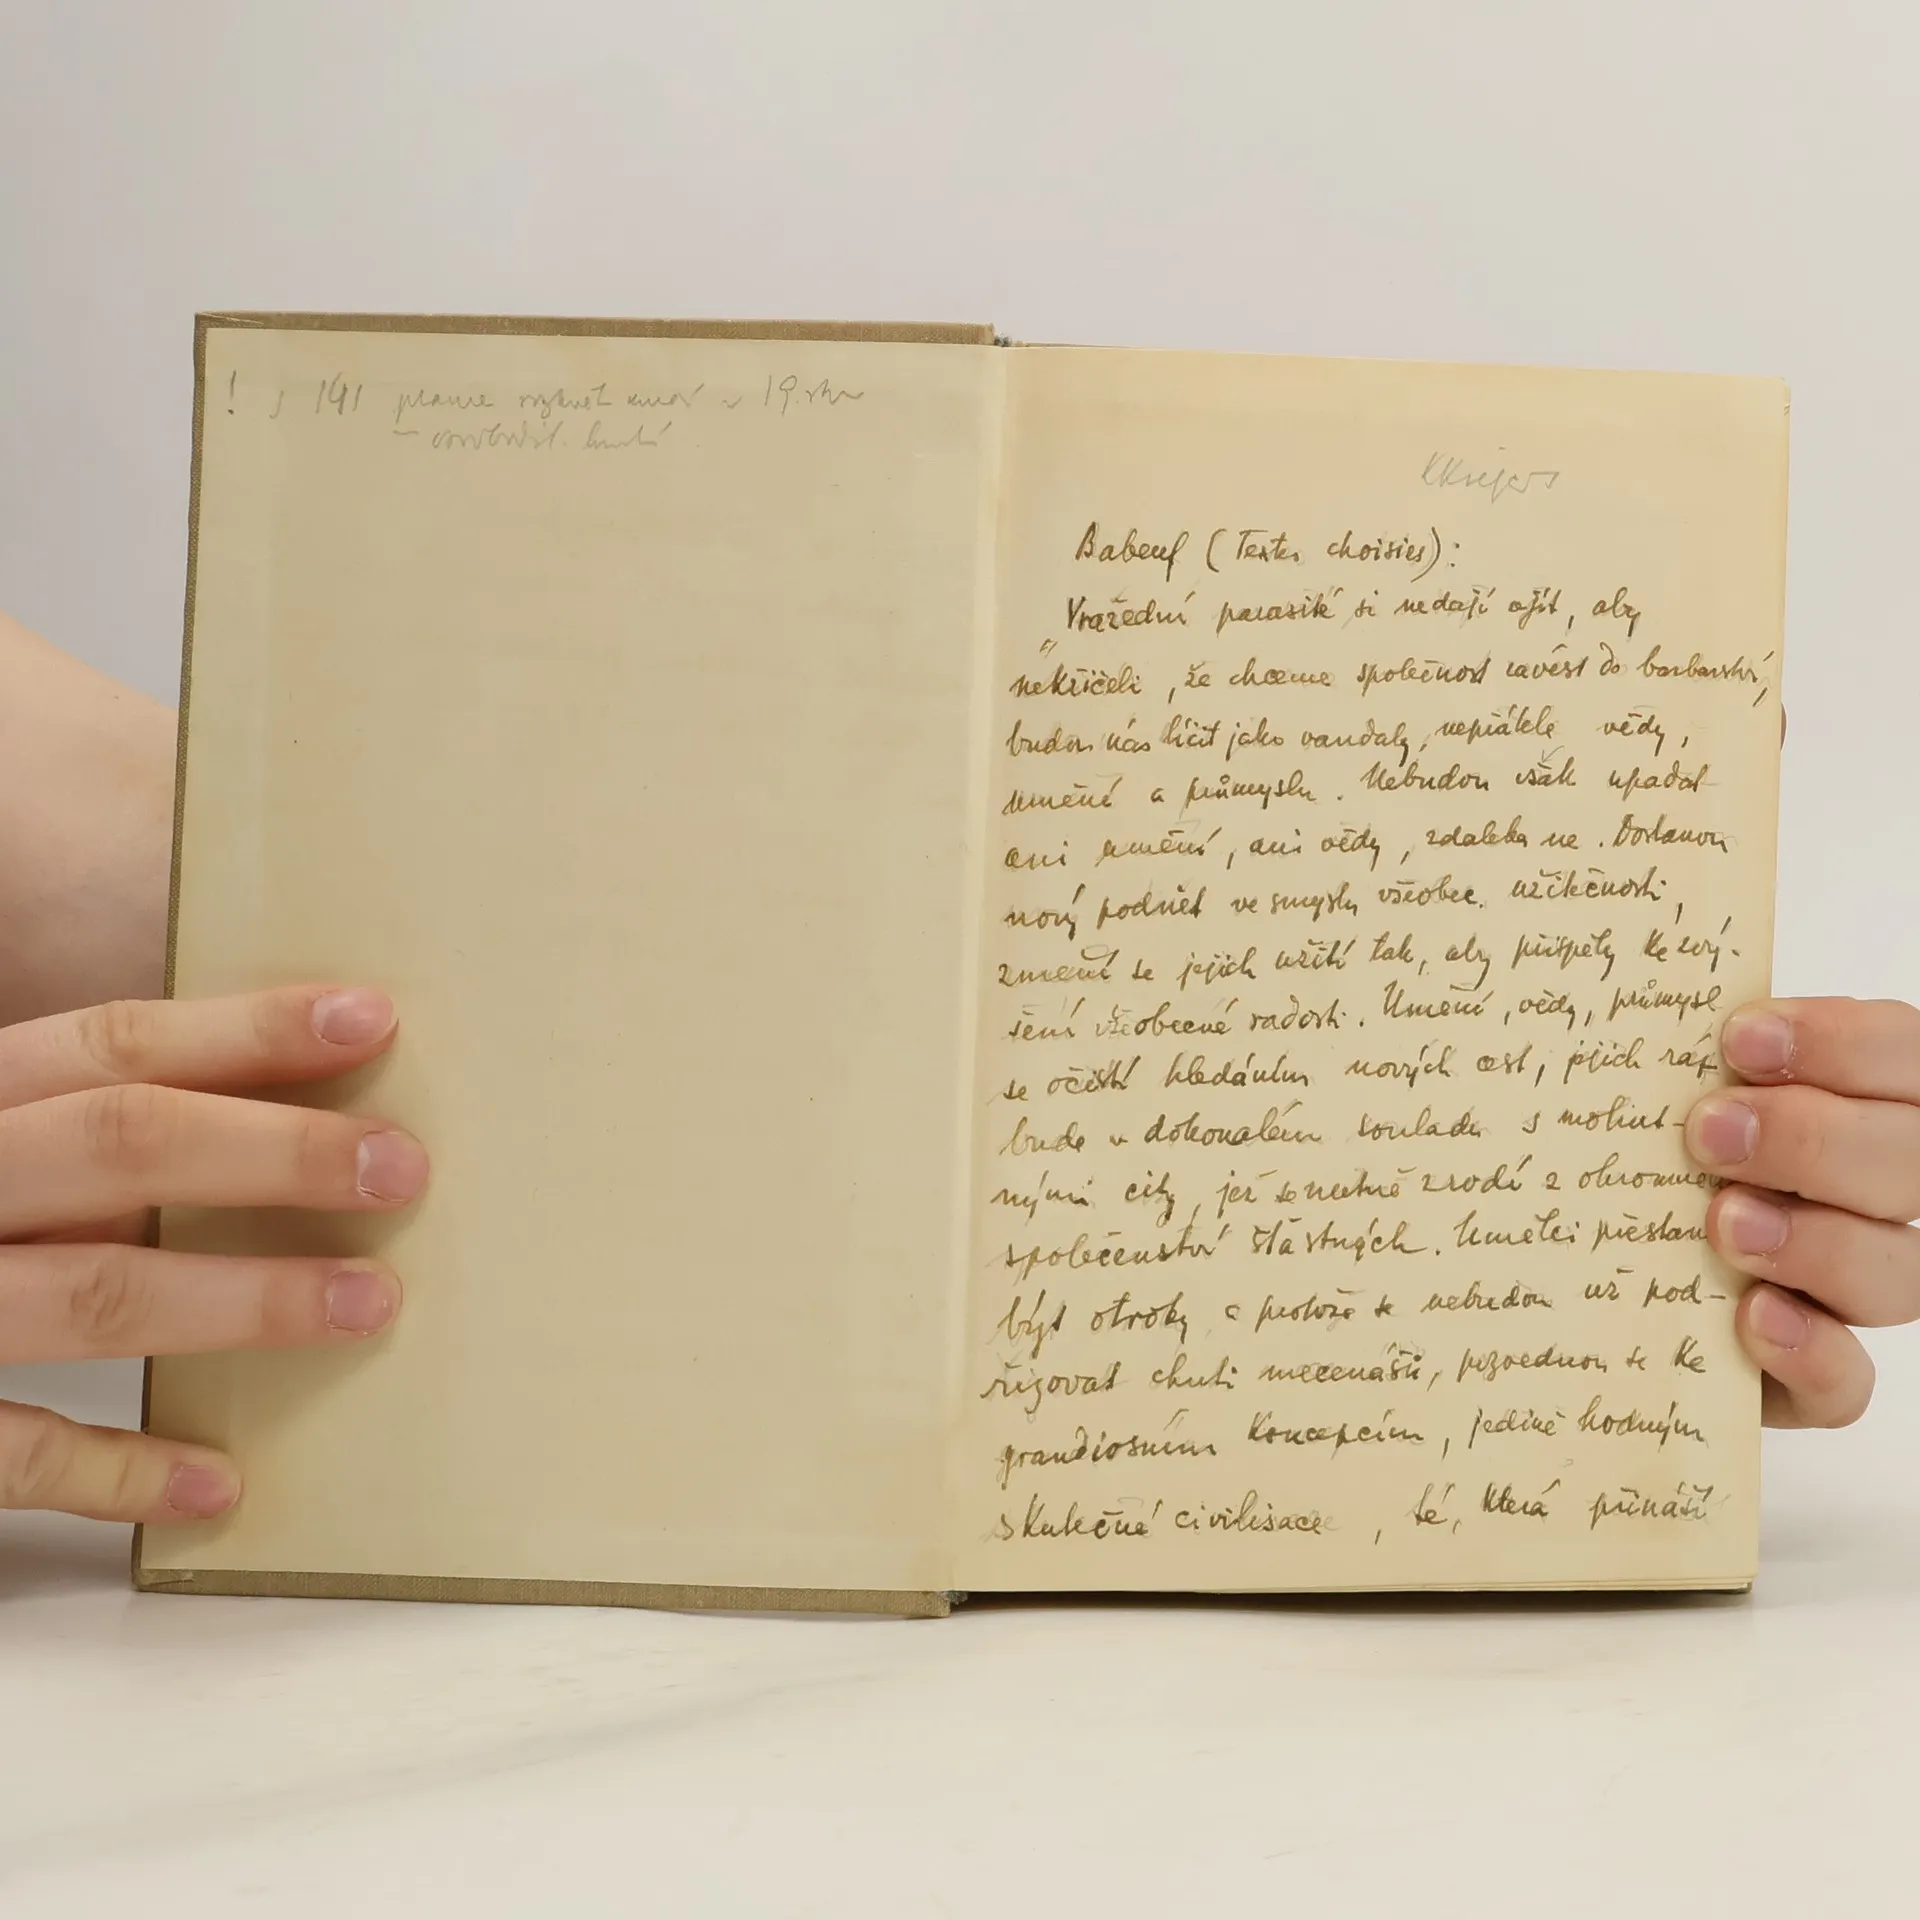 ! s 141
19. stol
Babeuf (Textes choisies):
„Vražední parasité si nedají ujít, aby
nekřičeli, že chceme společnost uvést do barbarství,
budou nás líčit jako vandaly, nepřátele vědy,
umění a průmyslu. Nebudou však upadat
ani umění, ani vědy, zdaleka ne. Dostanou
nový podnět ve smyslu všeobec. užitečnosti,
změní se jejich užití tak, aby přispěly ke zvý-
šení všeobecné radosti. Umění, vědy, průmysl
se očistí hledáním nových cest, jejich ráz
bude v dokonalém souladu s mohut-
nými city, jež se nutně zrodí z ohromného
společenství šťastných. Umělci přestanou
být otroky a protože se nebudou už pod-
řizovat chuti mecenášů, pozvednou se ke
grandiosním koncepcím, jedině hodným
skutečné civilisace, té, která přináší